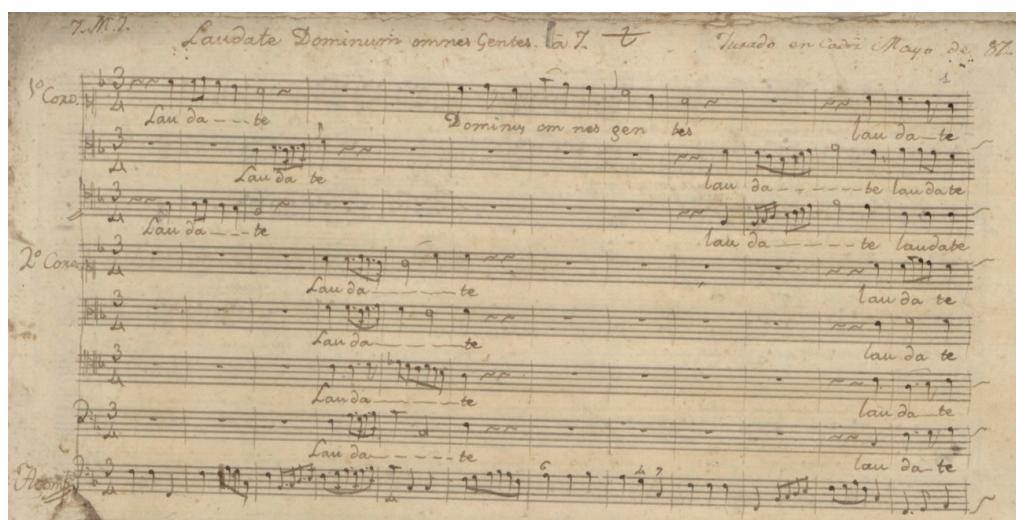 J. M. J. Laudate Dominum omnes Gentes. à 7. Jurado en Cadiz Mayo de 87.
1
1º Coro. 3 4
Lau da - - - te Dominus om nes gen tes lau da - te
3 4
Lau da te lau da - - - - - te laudate
3 4
Lau da - - - te lau da - - - - te laudate
2º Coro. 3 4
Lau da - - - - - te lau da te
3 4
Lau da - - - - - te lau da te
3 4
Lau da - - - - - te lau da - te
3 4
Lau da - - - - - te lau da - te
3 4 6 4 7